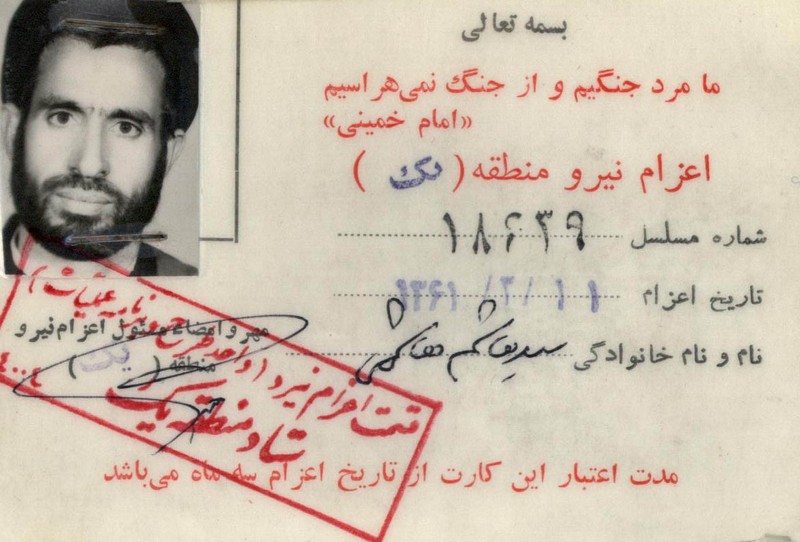 بسمه تعالی
ما مرد جنگیم و از جنگ نمی‌هراسیم
«امام خمینی»
اعزام نیرو منطقه ( یک )
شماره مسلسل ۱۸۶۳۹
تاریخ اعزام ۱۳۶۱/۲/۱۱
نام و نام خانوادگی سید هاشم
مهر و امضاء مسئول اعزام نیرو
منطقه ( یک )
قسمت اعزام نیرو
ستاد منطقه یک
مدت اعتبار این کارت از تاریخ اعزام سه ماه می‌باشد